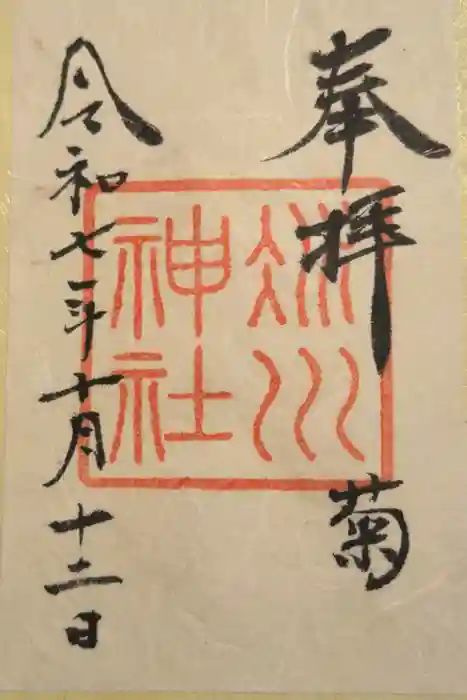 奉拝 菊
氷川
神社
令和七年十月十二日